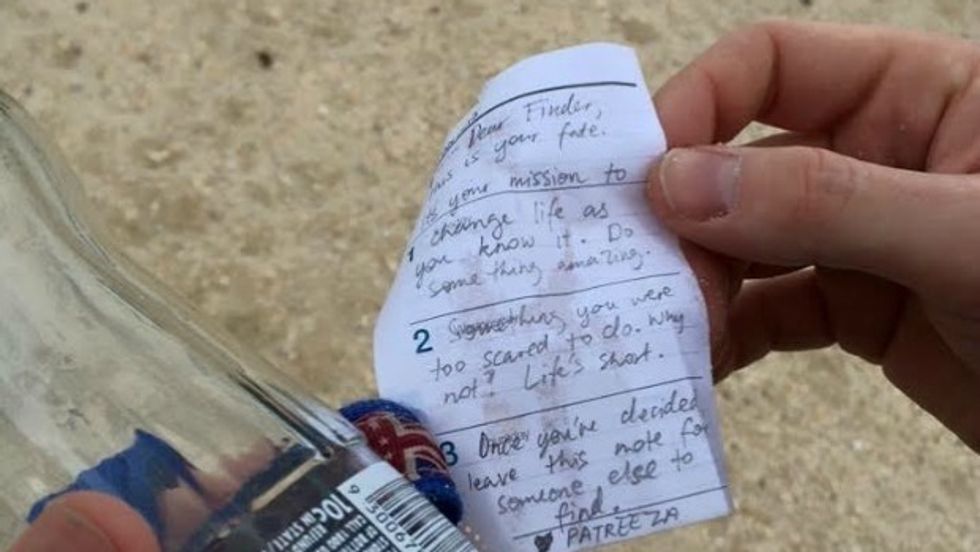 Dear Finder,
This is your fate.
your mission to
1 change life as
you know it. Do
something amazing.
2 Something you were
too scared to do. Why
not? Life's short.
3 Once you've decided
leave this note for
someone else to
find.
♥ PATREEZA
10c
9 350067